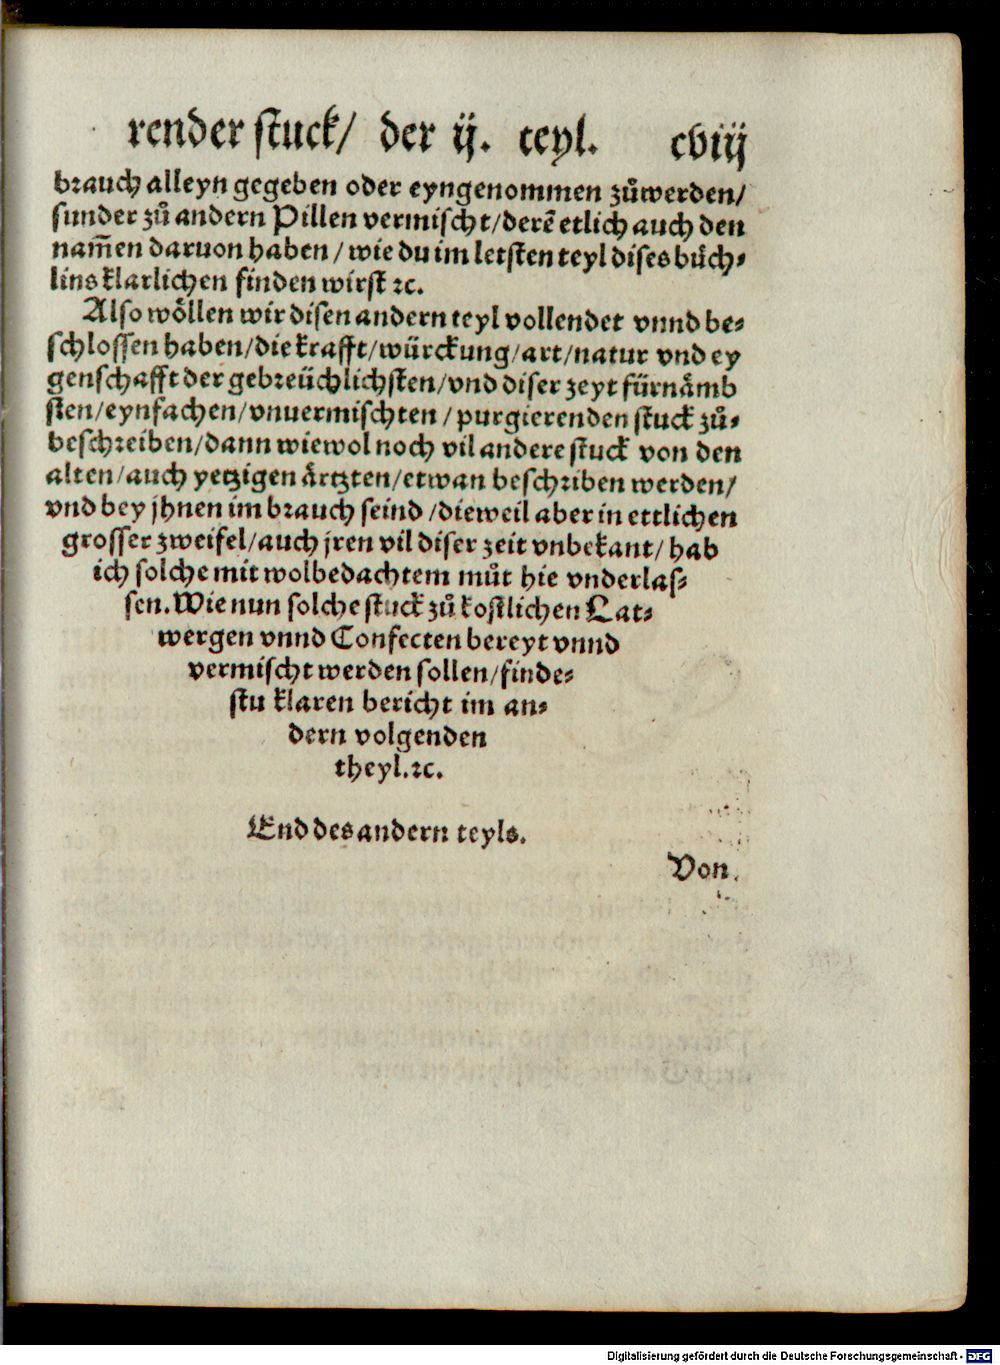 render stuck/ der ij. teyl. cviij
brauch alleyn gegeben oder eyngenommen zůwerden/
sunder zů andern Pillen vermischt/derẽ etlich auch den
nam̃en daruon haben/wie du im letsten teyl dises bůch⸗
lins klarlichen finden wirst ꝛc.
Also wöllen wir disen andern teyl vollendet vnnd be⸗
schlossen haben/die krafft/würckung/art/natur vnd ey
genschafft der gebreüchlichsten/vnd diser zeyt fürnämb
sten/eynfachen/vnuermischten/purgierenden stuck zů⸗
beschreiben/dann wiewol noch vil andere stuck von den
alten/auch yetzigen ärtzten/etwan beschriben werden/
vnd bey jhnen im brauch seind/dieweil aber in ettlichen
grosser zweifel/auch jren vil diser zeit vnbekant/hab
ich solche mit wolbedachtem můt hie vnderlas⸗
sen. Wie nun solche stuck zů kostlichen Lat⸗
wergen vnnd Confecten bereyt vnnd
vermischt werden sollen/finde⸗
stu klaren bericht im an⸗
dern volgenden
theyl.ꝛc.
End des andern teyls.
Von
Digitalisierung gefördert durch die Deutsche Forschungsgemeinschaft - DFG